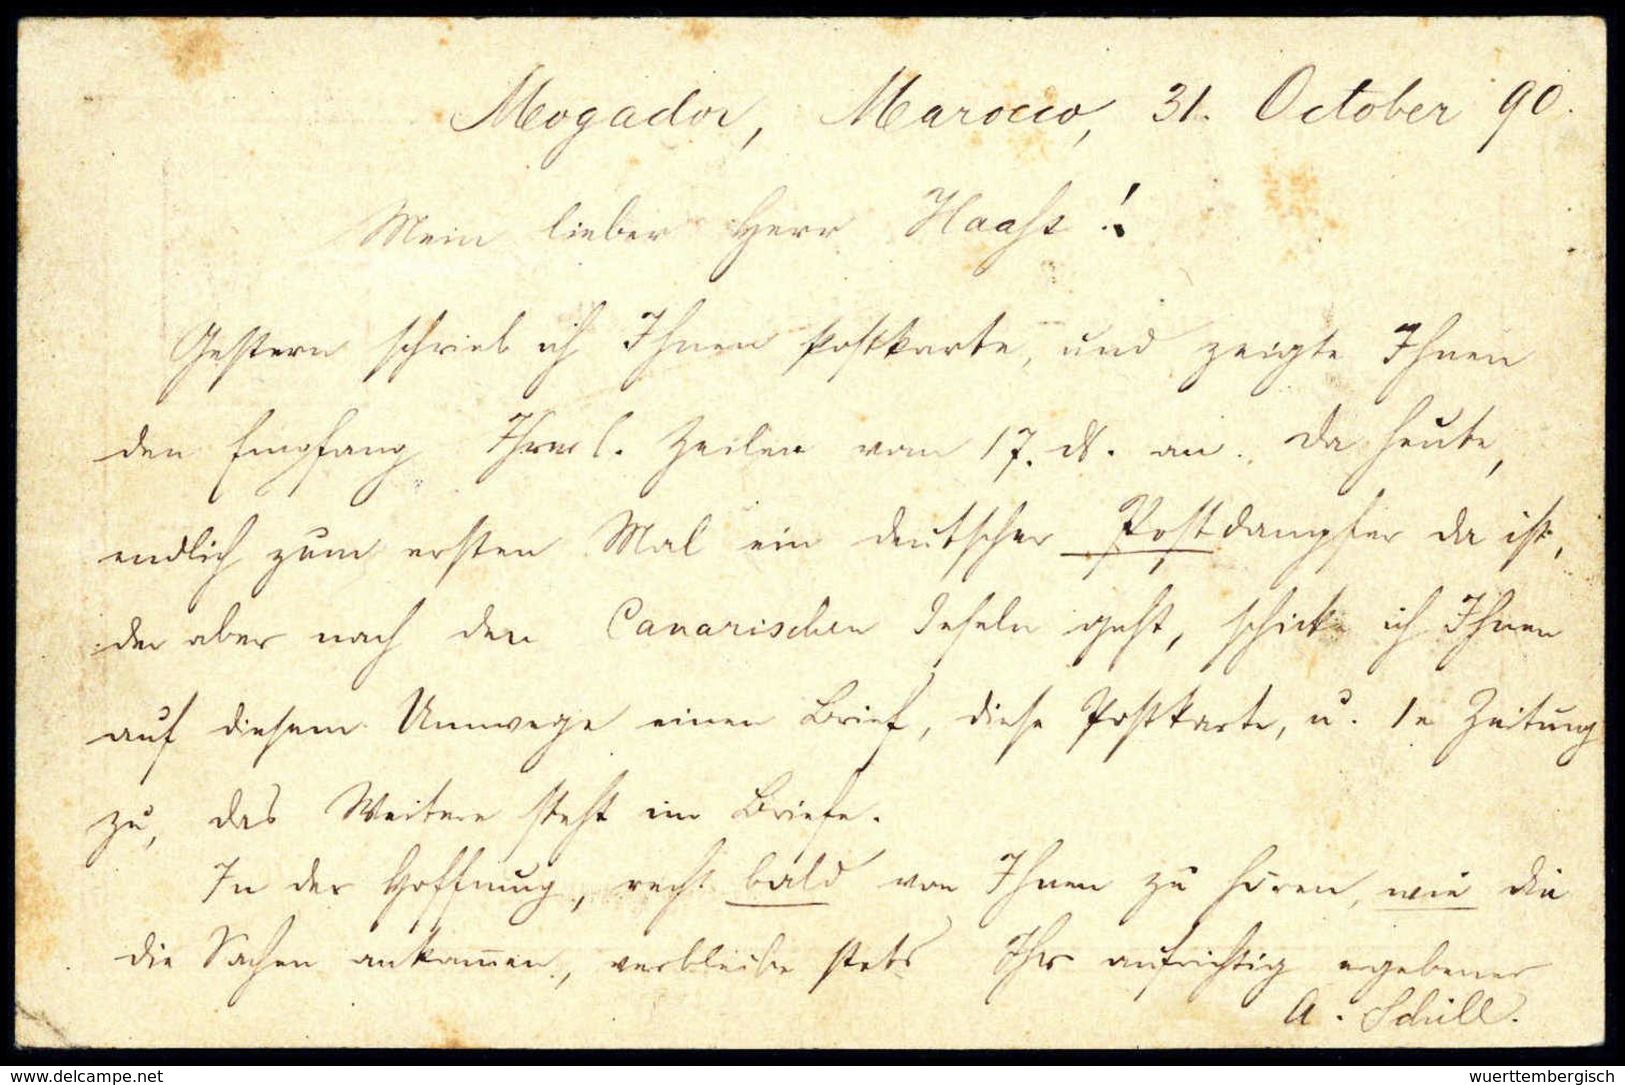 Mogador, Marocco, 31. October 90.
Mein lieber Herr Haase!
Gestern schrieb ich Ihnen Postkarte, und zeigte Ihnen
den Empfang Ihrer l. Zeilen vom 17. ds. an. Da heute,
endlich zum ersten Mal ein deutscher Postdampfer da ist,
der aber nach den Canarischen Inseln geht, schicke ich Ihnen
auf diesem Umwege einen Brief, diese Postkarte, u. 1e Zeitung
zu, das Weitere steht im Briefe.
In der Hoffnung, recht bald von Ihnen zu hören, wie die
die Sachen ankamen, verbleibe stets Ihr aufrichtig ergebener
A. Schüll.
www.delcampe.net
wuerttembergisch